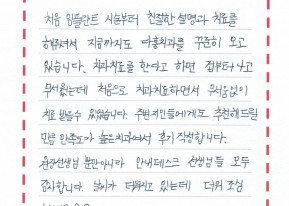 처음 임플란트 시술부터 친절한 설명과 치료를
해주셔서 지금까지도 다홍치과를 꾸준히 오고
있습니다. 치과치료를 한다고 하면 겁부터 나고
무서웠는데 처음으로 치과치료하면서 무서움없이
치료 받을수 있었습니다. 주변 지인들에게도 추천해드릴
만큼 만족도가 높은치과여서 후기 작성합니다.
원장선생님 뿐만아니라 안내데스크 선생님들 모두
감사합니다. 날씨가 더워지고 있는데 더위 조심